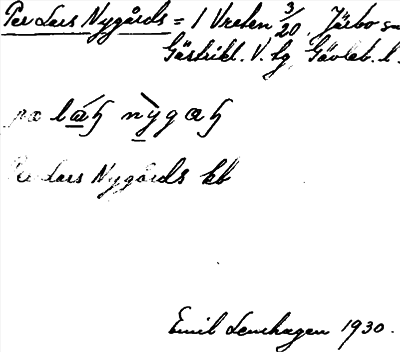 Per Lars Nygårds = 1 Vreten 3/20, Järbo sn
Gästrikl. V. tg, Gävleb. l.
Per Lars Nygårds kb
Emil Lenhagen 1930.